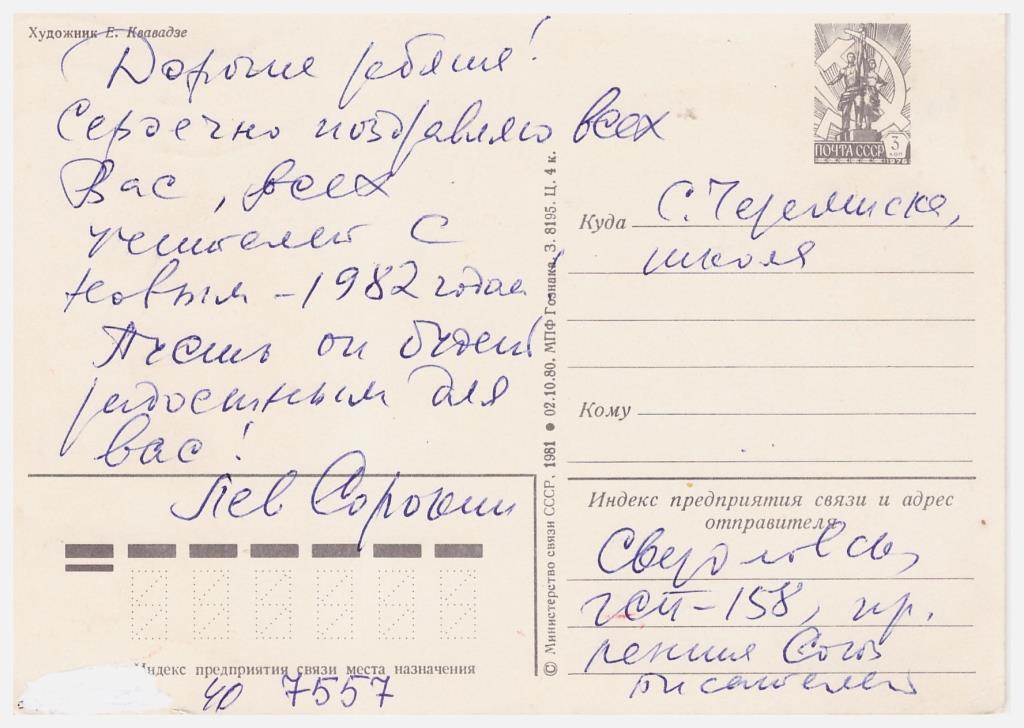 Художник Е. Квавадзе
Дорогие ребята!
Сердечно поздравляю всех
Вас, всех
учителей с
Новым - 1982 годом
Пусть он будет
радостным для
вас!
Лев Сорокин
ПОЧТА СССР 3 КОП 1976
Куда С. Черемиска,
школа
Кому
Индекс предприятия связи и адрес
отправителя
Свердловск,
ГСП-158, пр.
Ленина Союз
писателей
© Министерство связи СССР, 1981 ● 02.10.80. МПФ Гознака. З. 8195. Ц. 4 к.
Индекс предприятия связи места назначения
ЧО 7557